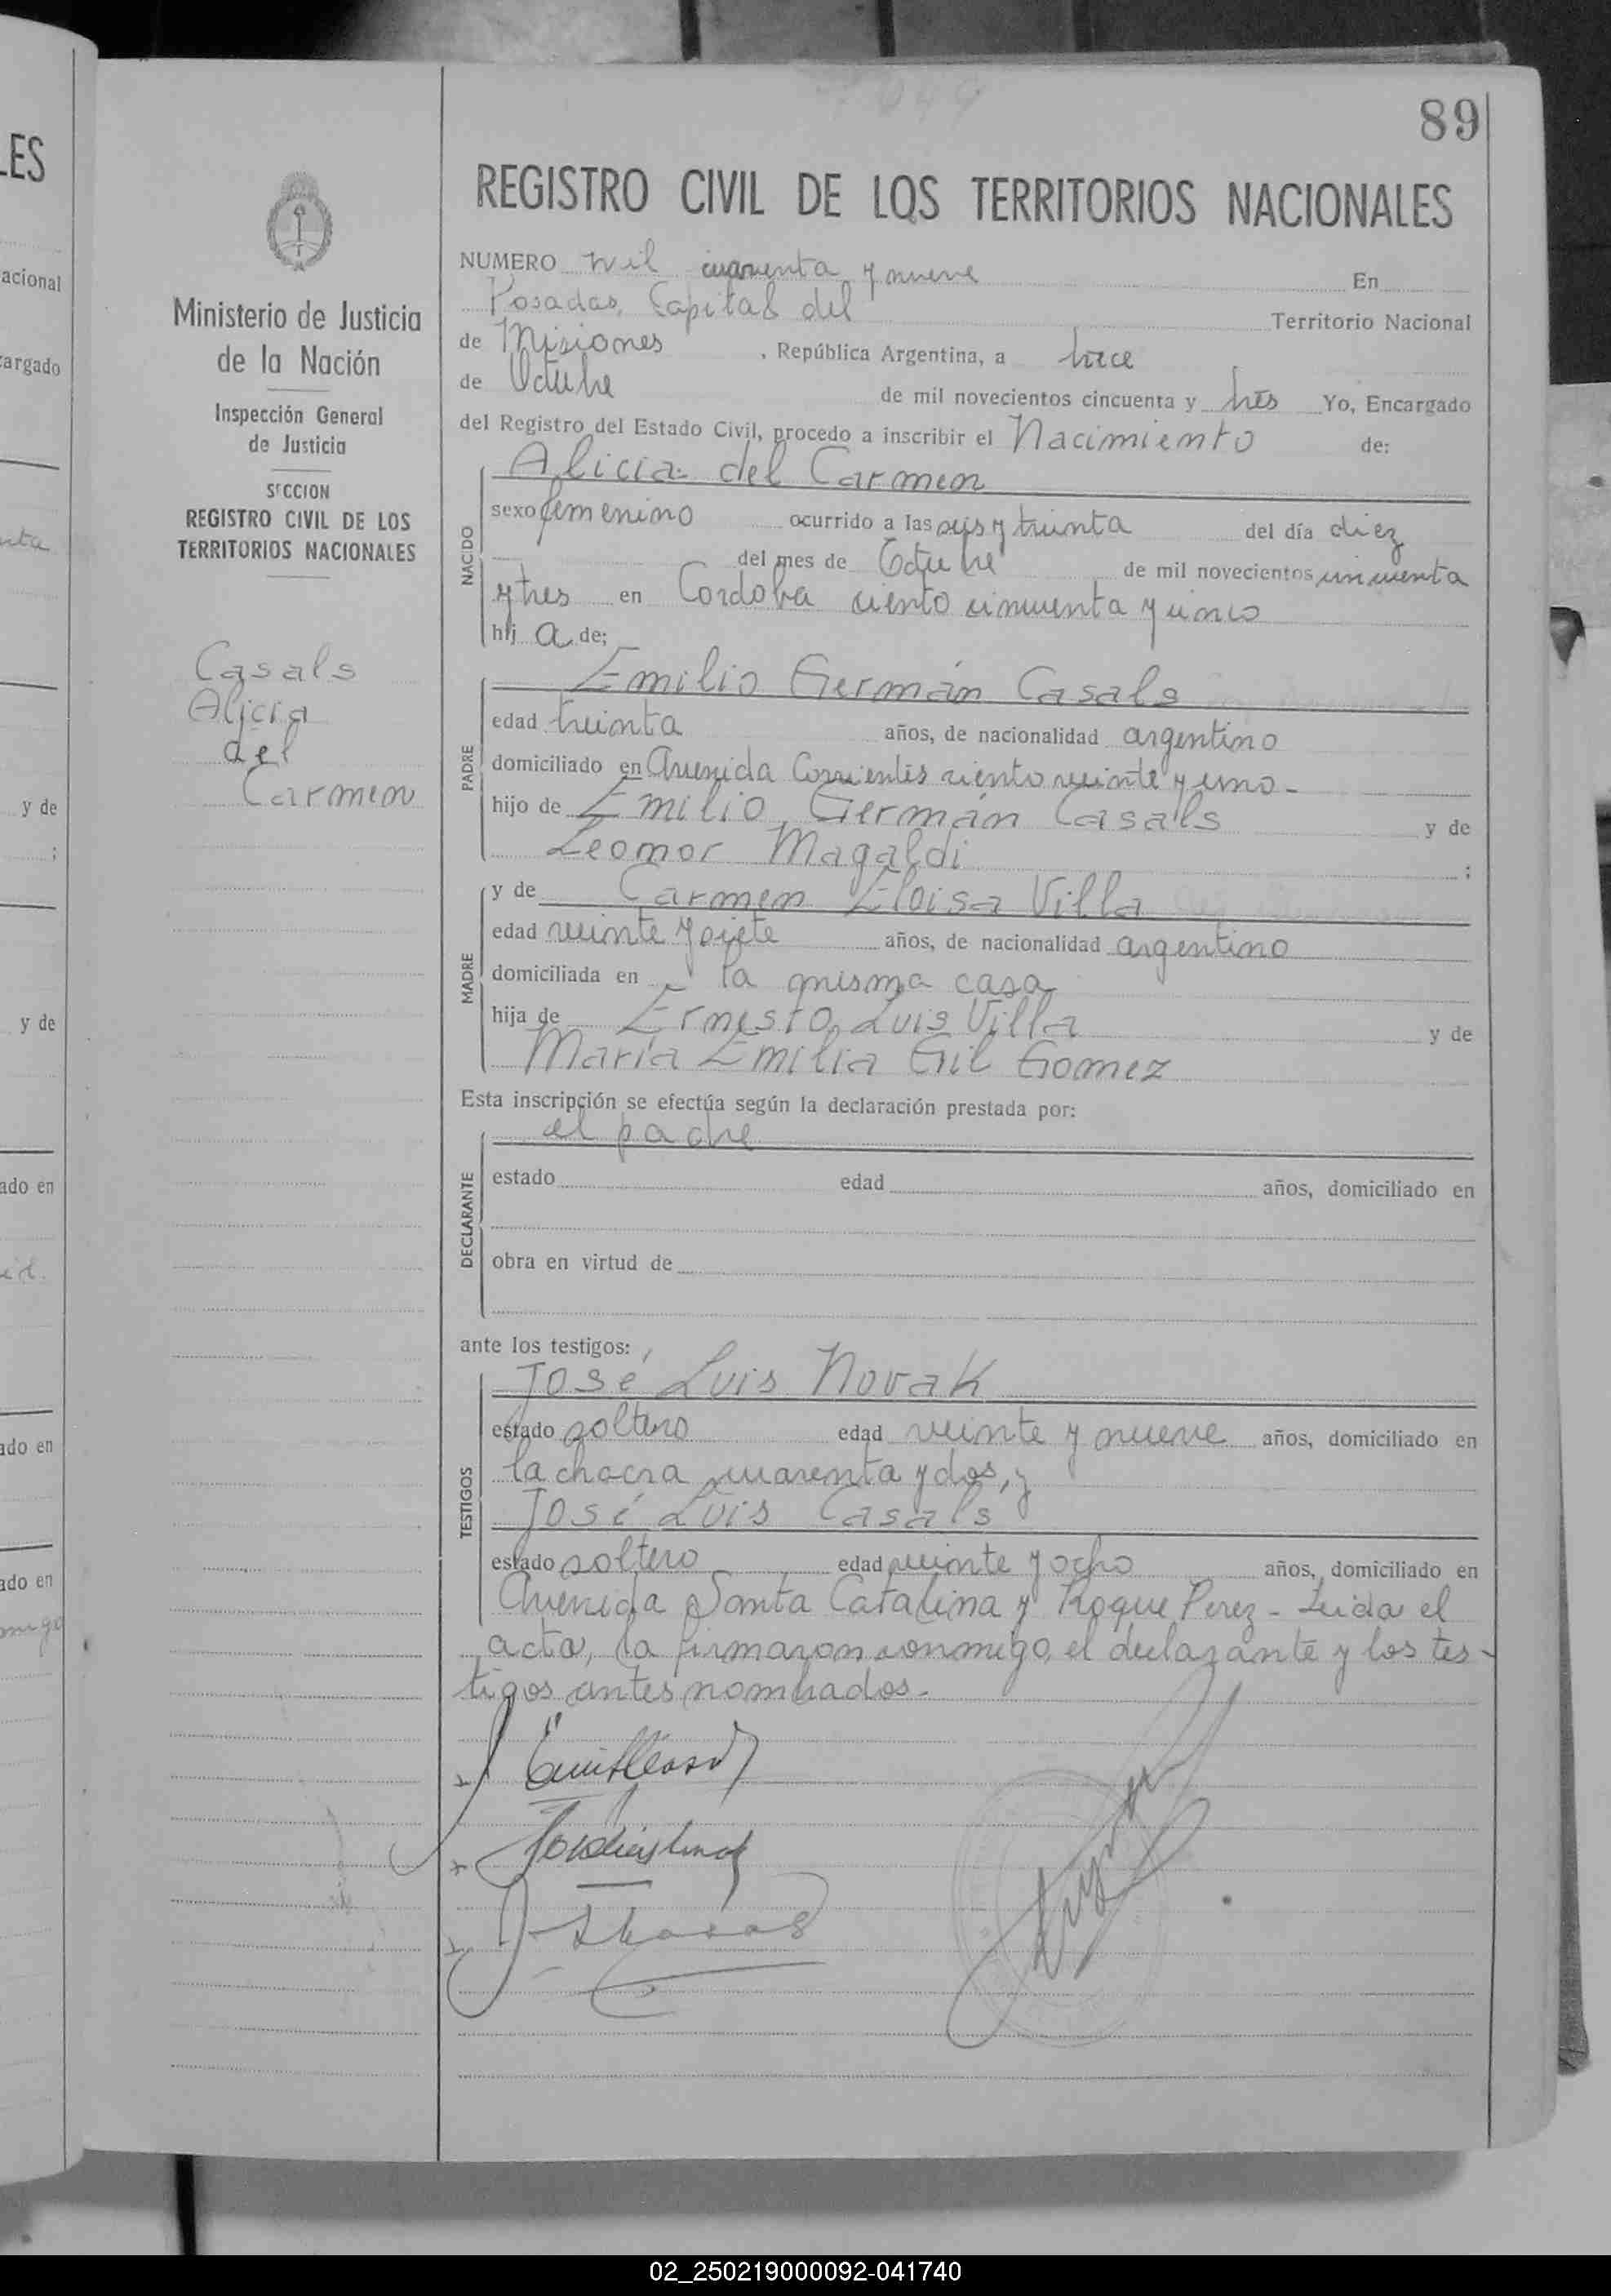 89
REGISTRO CIVIL DE LOS TERRITORIOS NACIONALES
NUMERO mil cuarenta y nueve En
Posadas, Capital del Territorio Nacional
de Misiones, República Argentina, a trece
de Octubre de mil novecientos cincuenta y tres Yo, Encargado
del Registro del Estado Civil, procedo a inscribir el Nacimiento de:
Alicia del Carmen
NACIDO
sexo femenino ocurrido a las seis y treinta del día diez
del mes de Octubre de mil novecientos cincuenta
y tres en Cordoba ciento cincuenta y cinco
hij a de;
PADRE
Emilio Germán Casals
edad treinta años, de nacionalidad argentino
domiciliado en Avenida Corrientes ciento veinte y uno-
hijo de Emilio Germán Casals y de
Leonor Magaldi ;
MADRE
y de Carmen Eloisa Villa
edad veinte y siete años, de nacionalidad argentino
domiciliada en la misma casa
hija de Ernesto Luis Villa y de
María Emilia Gil Gomez
Esta inscripción se efectúa según la declaración prestada por:
el padre
DECLARANTE
estado edad años, domiciliado en
obra en virtud de
ante los testigos:
TESTIGOS
José Luis Novak
estado soltero edad veinte y nueve años, domiciliado en
la chacra cuarenta y dos, y
José Luis Casals
estado soltero edad veinte y ocho años, domiciliado en
Avenida Santa Catalina y Roque Perez - Leida el
acta, la firmaron conmigo, el declarante y los tes-
tigos antes nombrados.-
Ministerio de Justicia
de la Nación
Inspección General
de Justicia
SECCION
REGISTRO CIVIL DE LOS
TERRITORIOS NACIONALES
Casals
Alicia
del
Carmen
LES
acional
cargado
y de
;
y de
ado en
ado en
ado en
02_250219000092-041740